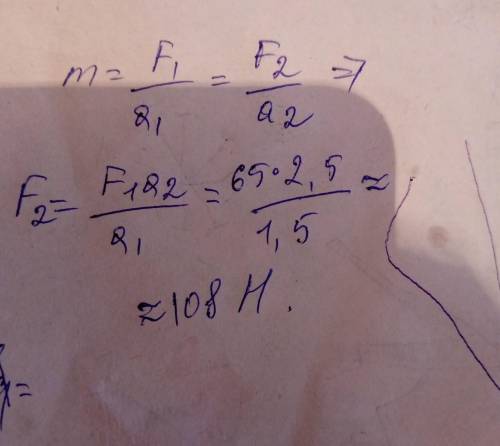 m = F₁/a₁ = F₂/a₂ ⇒
F₂ = F₁a₂/a₁ = 65·2,5/1,5 ≈
≈108 Н.